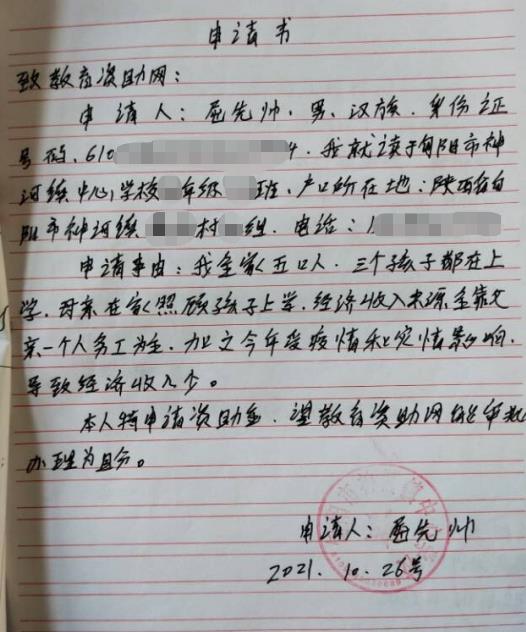 申请书
致教育资助网：
申请人：屈先帅，男，汉族，身份证
号码，610 4，我就读于旬阳市神
河镇中心学校 年级 班，户口所在地：陕西省旬
阳市神河镇 村 组，电话：1
申请事由：我全家五口人，三个孩子都在上
学，母亲在家照顾孩子上学，经济收入来源全靠父
亲一个人务工为主，加之今年受疫情和灾情影响，
导致经济收入少。
本人特申请资助金，望教育资助网能审批
办理为盼。
申请人：屈先帅
2021.10.26号